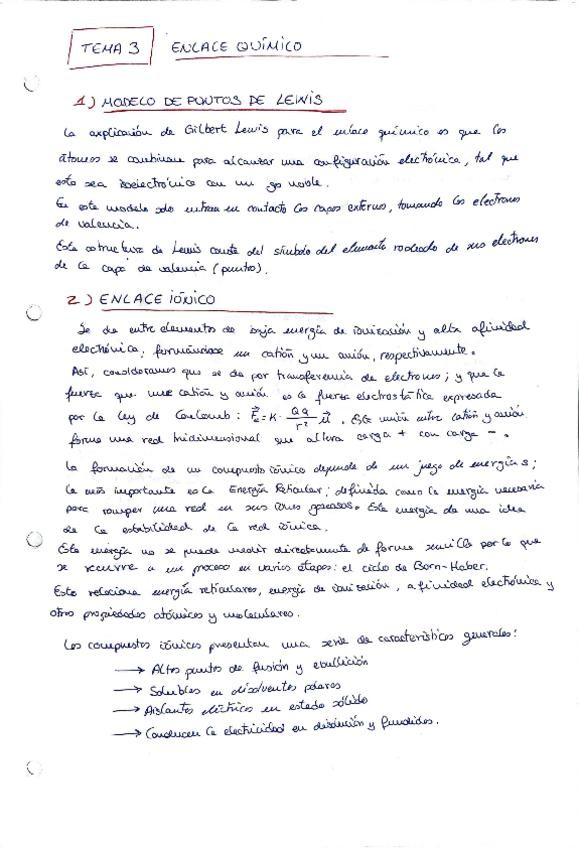 TEMA 3 ENLACE QUÍMICO
1) MODELO DE PUNTOS DE LEWIS
La explicación de Gilbert Lewis para el enlace químico es que los
átomos se combinan para alcanzar una configuración electrónica, tal que
esta sea isoelectrónica con un gas noble.
En este modelo solo entran en contacto las capas externas, tomando los electrones
de valencia.
Esta estructura de Lewis consta del símbolo del elemento rodeado de sus electrones
de la capa de valencia (puntos).
2) ENLACE IÓNICO
Se da entre elementos de baja energía de ionización y alta afinidad
electrónica, formándose un catión y un anión, respectivamente.
Así, consideramos que se da por transferencia de electrones; y que la
fuerza que une catión y anión es la fuerza electrostática expresada
por la ley de Coulomb: F⃗e = K · Qq/r² μ⃗. Esta unión entre catión y anión
forma una red tridimensional que alterna carga + con carga -.
La formación de un compuesto iónico depende de un juego de energías;
la más importante es la Energía Reticular; definida como la energía necesaria
para romper una red en sus iones gaseosos. Esta energía da una idea
de la estabilidad de la red iónica.
Esta energía no se puede medir directamente de forma sencilla por lo que
se recurre a un proceso en varias etapas: el ciclo de Born-Haber.
Este relaciona energía reticulares, energía de ionización, afinidad electrónica y
otras propiedades atómicas y moleculares.
Los compuestos iónicos presentan una serie de características generales:
→ Altos puntos de fusión y ebullición
→ Solubles en disolventes polares
→ Aislantes eléctricos en estado sólido
→ Conducen la electricidad en disolución y fundidos.